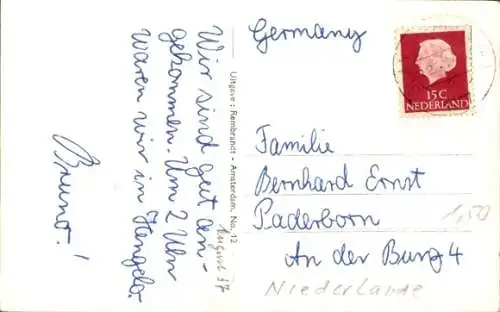 Wir sind gut an-
gekommen. Um 2 Uhr
waren wir in Hengelo.
Bruno!
Uitgave: Rembrandt - Amsterdam, No. 12
August 57
Germany
15C
NEDERLAND
Familie
Bernhard Ernst
Paderborn
An der Burg 4
1,50
Niederlande